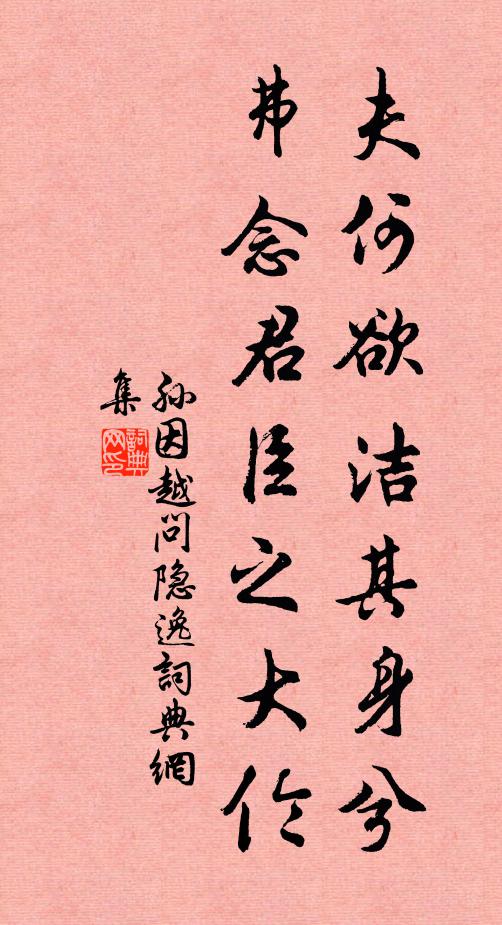 夫何欲洁其身兮
弗念君臣之大伦
孙因越问隐逸詞典網
集
詞典网印